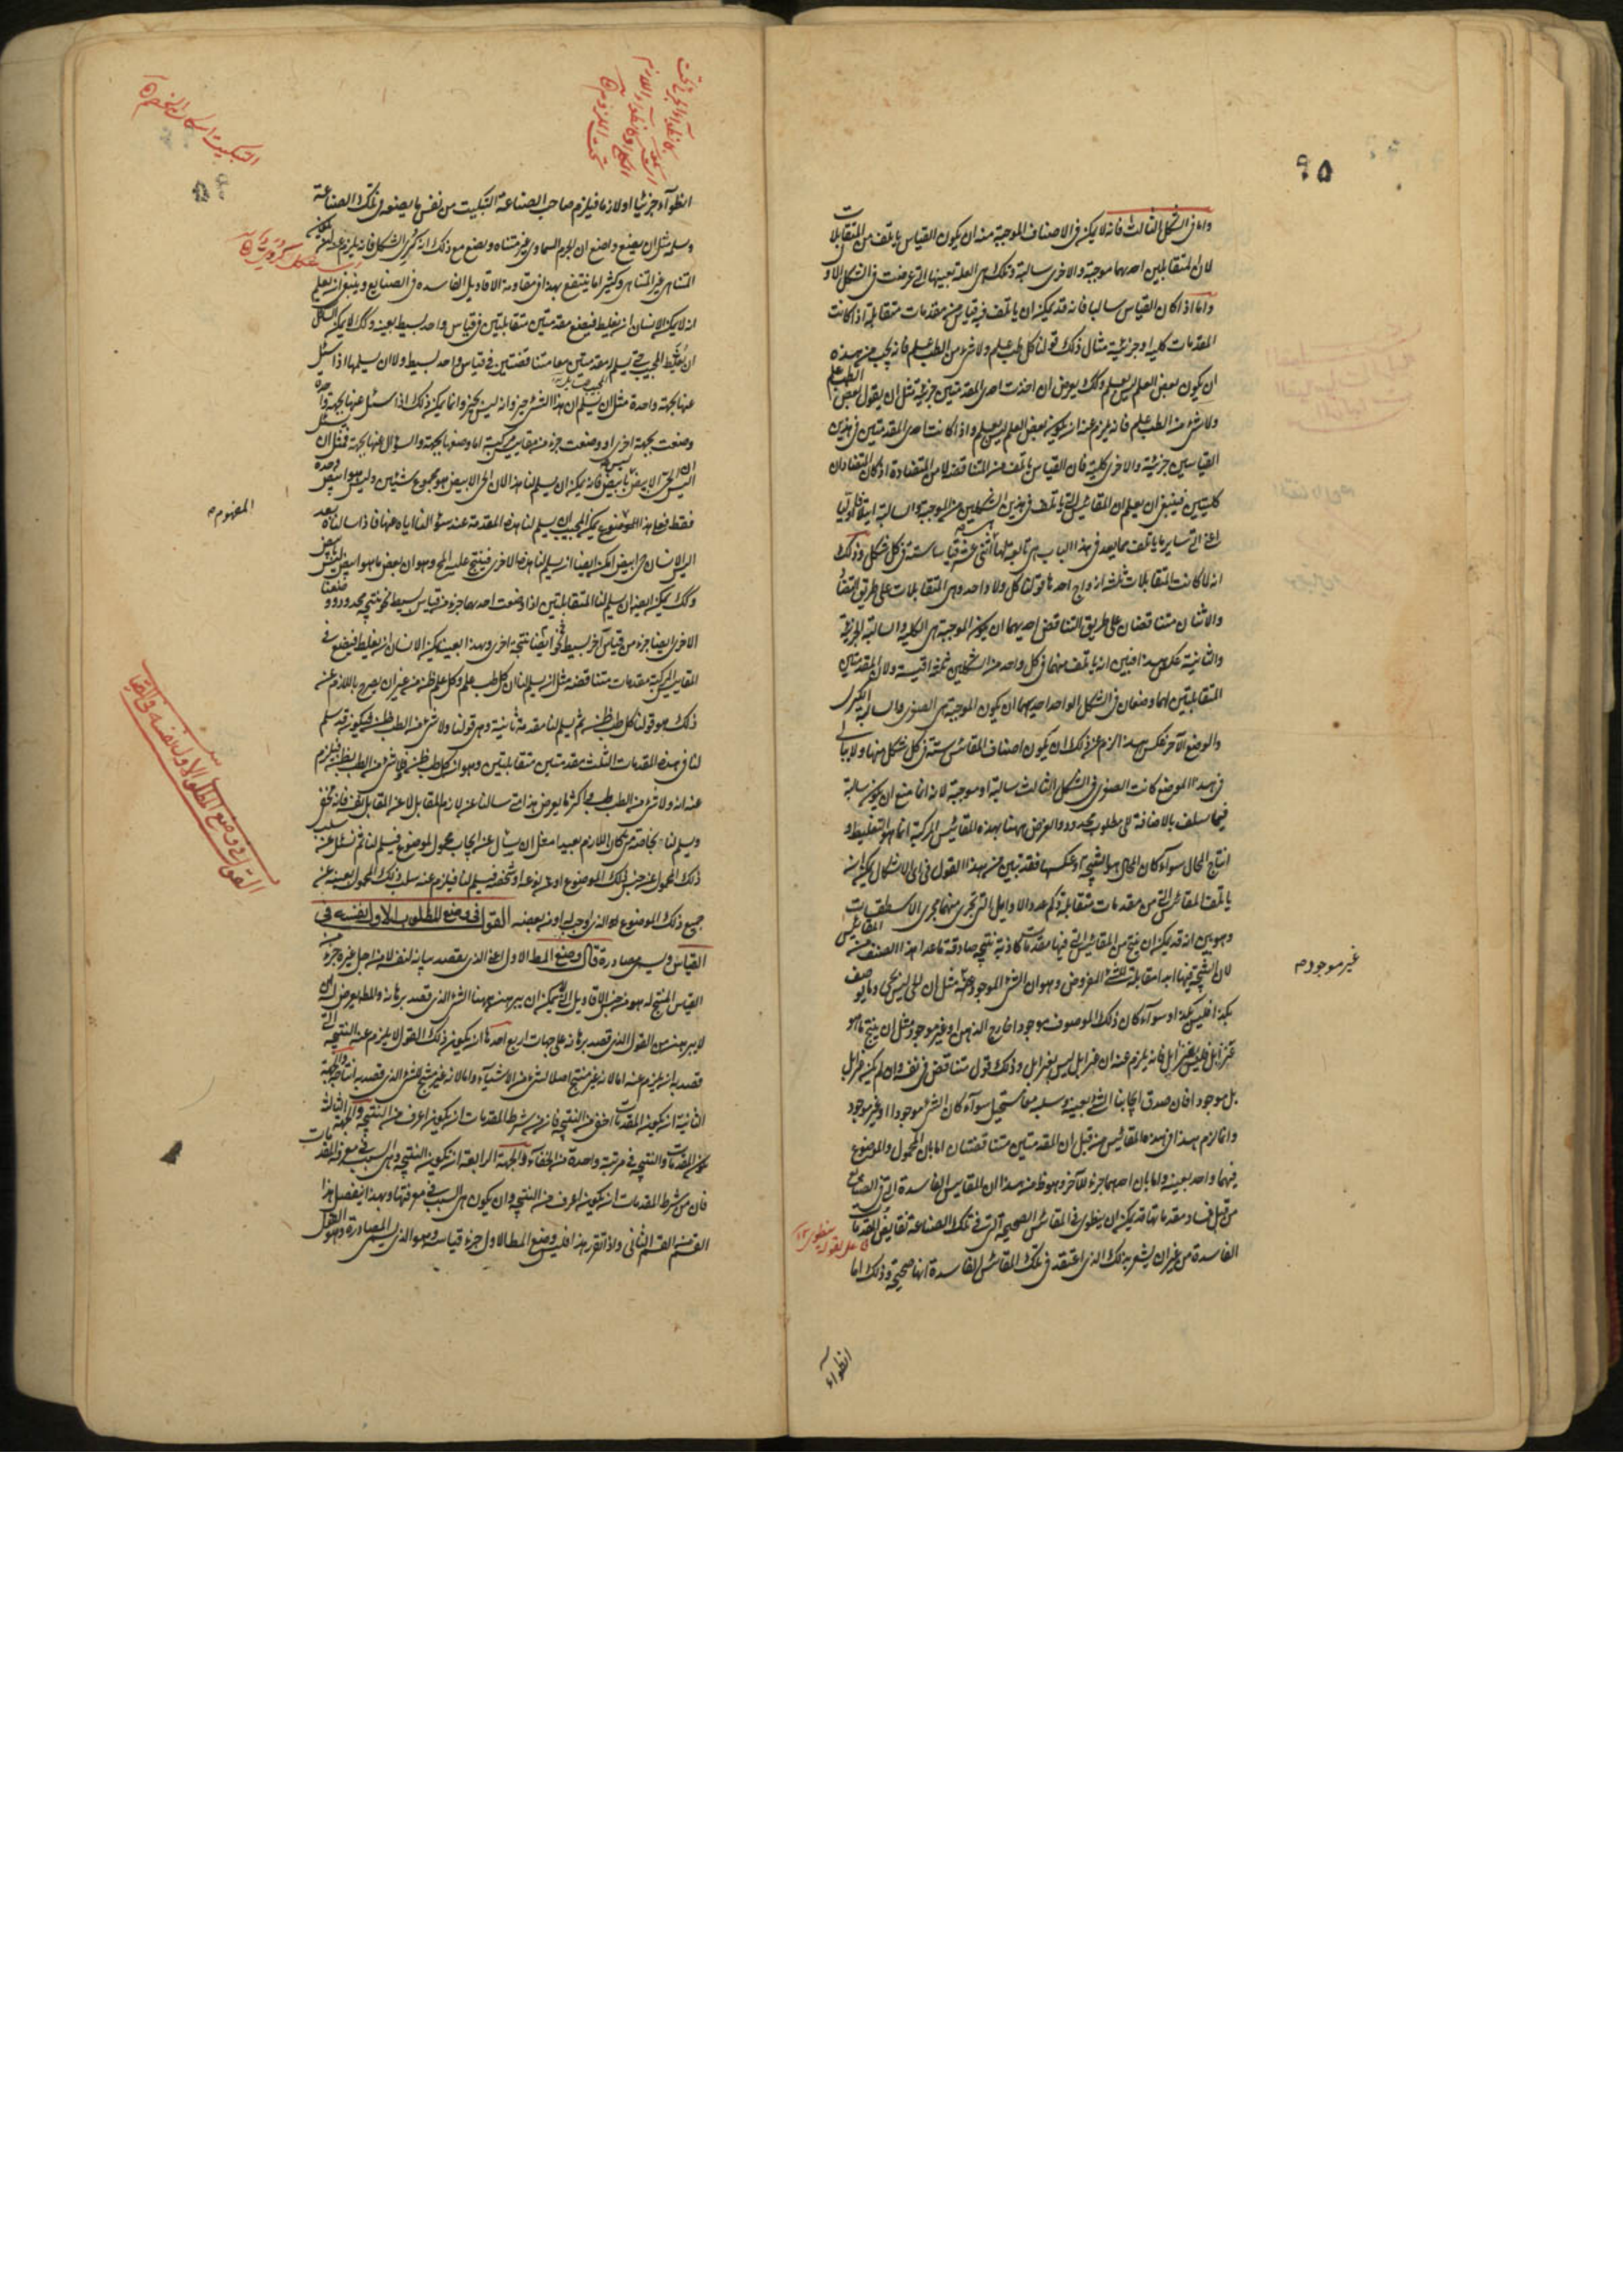 ٩٥
واما فى الشكل الثالث فانه لا يمكن فى الاصناف الموجبة منه ان يكون القياس يأتلف من المتقابلات
لان المتقابلين احدهما موجبة والاخرى سالبة وتلك هى العلة بعينها التى عرضت فى الشكل الاو
واما اذا كان القياس سالبا فانه قد يمكن ان يأتلف فيه قياس من مقدمات متقابلة اذا كانت
المقدمات كلية او جزئية مثال ذلك قولنا كل طب علم ولا شئ من الطب علم فانه يجب من هذه
ان يكون بعض العلم ليس بعلم وكذلك يعرض ان اخذت احدى المقدمتين جزئية مثل ان يقول بعض الطب علم
ولا شئ من الطب علم فانه يلزم عنه ان يكون بعض العلم ليس بعلم واذا كانت احدى المقدمتين فى هذين
القياسين جزئية والاخرى كلية فان القياس يأتلف من المتناقضة لا من المتضادة اذ كان المتضادان
كليتين فينبغى ان يعلم ان المقائيس التى يأتلف فى هذين الشكلين من الموجبة والسالبة
اعنى التى سائر ما يأتلف مما يعد فى هذا الباب هى تابعة لها اثنى عشر قياسا ستة فى كل شكل وذلك
انه لما كانت المتقابلات ثلثة ازواج احدها قولنا كل ولا واحد وهى المتقابلات على طريق التضاد
والاثنان متناقضان على طريق التناقض احديهما ان يكون الموجبة هى الكلية والسالبة الجزئية
والثانية عكس هذا فبين انه يأتلف منهما فى كل واحد من الشكلين ثلثة اقيسة ولان المقدمتين
المتقابلتين لهما وضعان فى الشكل الواحد احديهما ان يكون الموجبة هى الصغرى والسالبة الكبرى
والوضع الآخر عكس هذا لزم عن ذلك ان يكون اصناف المقائيس ستة فى كل شكل منها ولا يبالى
فى هذا الموضع كانت الصغرى فى الشكل الثالث سالبة او موجبة لانه انما منع ان يكون سالبة
فيما سلف بالاضافة الى مطلوب محدود والغرض ههنا بهذه المقائيس المركبة انما هو التغليط و
انتاج المحال سوآء كان المحال هو النتيجة او عكسها فقد تبين من هذا القول فى اى الاشكال يمكن ان
يأتلف المقائيس التى من مقدمات متقابلة وكم عدد الاوايل التى تجرى منها مجرى الاسطقسات
وهو بين انه قد يمكن ان ينتج من المقائيس التى فيها مقدمات كاذبة نتيجة صادقة ما عدا هذا الصنف من المقائيس
لان النتيجة فيها ابدا مقابلة للشئ المفروض وهو ان الشئ الموجود مثل ان الحى ليس بحى وما يوصف
بكذا فليس بكذا وسوآء كان ذلك الموصوف موجودا خارج الذهن او غير موجود مثل ان ينتج ما هو
عنزايل فليس بعنزايل فانه يلزم عنه ان عنزايل ليس بعنزايل وذلك قول متناقض فى نفسه وان لم يكن عنزايل
بل موجودا فان صدق ايجابنا الشئ بعينه وسلبه معا مستحيل سوآء كان الشئ موجودا او غير موجود
وانما لزم هذا فى هذه المقائيس من قبل ان المقدمتين متناقضتان اما بان المحمول والموضوع
فيهما واحد بعينه واما بان احدهما جزء للآخر وهو ظ من هذا ان المقائيس الفاسدة التى فى الصنائع
من قبل فساد مقدماتها قد يمكن ان ينطوى فى المقائيس الصحيحة التى فى تلك الصناعة نقايض المقدمات
الفاسدة من غير ان يشعر بذلك الذى اعتقد فى تلك المقائيس الفاسدة انها صحيحة وذلك اما
غير موجود م
انطوآء
انطوآء جزئيا او لازما فيلزم صاحب الصناعة التبكيت من نفس ما يصنعه فى تلك الصناعة
وسلمه مثل ان يضع واضع ان الجرم السماوى غير متناه ويضع مع ذلك انه كرى الشكل فانه يلزم عنه ان يكون
المتناهى غير المتناهى وكثيرا ما ينتفع بهذا فى مقاومة الاقاويل الفاسدة فى الصنايع وينبغى ان يعلم
انه لا يمكن الانسان ان يغلط فيضع مقدمتين متقابلتين فى قياس واحد بسيط بعينه وكذلك لا يمكن السائل
ان يغلط المجيب حتى يسلم له مقدمتين معا متناقضتين فى قياس واحد بسيط ولا ان يسلمها اذا سئل
عنها بجهة واحدة مثل ان يسلم ان هذا الشئ خير وانه ليس بخير وانما يمكن ذلك اذا سئل عنها بجهة واحدة
وضعت بجهة اخرى او وضعت جزء من مقاييس مركبة اما وضعها بجهة والسؤال عنها بجهة فمثل ان يسئل
اليس الحى الابيض بابيض فانه يمكن ان يسلم لنا هذا لان الحى الابيض هو مجموع شيئين وليس هو ابيض وحده
فقط فعلى هذا الموضوع يمكن المجيب ان يسلم لنا هذه المقدمة عند سؤالنا اياه عنها فاذا سالناه بعد
اليس الانسان حى ابيض امكن ايضا ان يسلم لنا هذه الاخرى فينتج عليه المح وهو ان بعض ما هو ابيض ليس بابيض
وكذلك يمكن ايضا ان يسلم لنا المتقابلتين اذا وضعت احديهما جزء من قياس بسيط نحو نتيجة محدودة ووضعنا
الاخرى ايضا جزء من قياس آخر بسيط نحو ايضا نتيجة اخرى وبهذا بعينه يمكن الانسان ان يغلط فيضع فى
المقاييس المركبة مقدمات متناقضة مثل ان يسلم لنا ان كل طب علم وكل علم ظن من غير ان يصرح باللازم عن
ذلك وهو قولنا كل طب ظن ثم يسلم لنا مقدمة ثانية وهى قولنا ولا شئ من الطب ظن فيكون قد سلم
لنا فى هذه المقدمات الثلث مقدمتين متقابلتين وهو ان كل طب ظن ولا شئ من الطب بظن فيلزم
عنه انه ولا شئ من الطب طب واكثر ما يعرض هذا متى سالنا عن لازم المقابل لا عن المقابل نفسه فانه يخفى
ويسلم لنا وبخاصة متى كان اللازم بعيدا مثل ان يسأل عن ايجاب محمول لموضوع فيسلم لنا ثم نسئل عن سلب
ذلك المحمول عن جنس ذلك الموضوع او عن نوعه او شخصه فيسلم لنا فيلزم عنه سلب ذلك المحمول بعينه عن
جميع ذلك الموضوع الذى اوجب له او من بعضه القول فى وضع المطلوب الاول نفسه فى
القياس وسمى مصادرة قال وضع المط الاول اعنى الذى يقصد بيانه لنفسه لا من اجل غيره جزء من
القياس المنتج له هو من جنس الاقاويل التى يمكن ان يبرهن بها هنا الشئ الذى قصد برهانه والمط يعرض له ان
لا يبرهن من القول الذى قصد برهانه على جهات اربع احدها ان يكون ذلك القول لا يلزم عنه النتيجة التى
قصد به ان يلزم عنه اما لانه غير منتج اصلا لشئ من الاشيآء واما لانه غير منتج للشئ الذى قصد به انتاجه والجهة
الثانية ان يكون المقدمات اخفى من النتيجة فانه من شرط المقدمات ان يكون اعرف من النتيجة والجهة الثالثة
كون المقدمات والنتيجة فى مرتبة واحدة من الخفاء والجهة الرابعة ان يكون النتيجة هى السبب فى معرفة المقدمات
فان من شرط المقدمات ان يكون اعرف من النتيجة وان يكون هى السبب فى معرفتها وبهذا ينفصل هذا
القسم من القسم الثانى واذا تقرر هذا فليس وضع المط الاول جزء قياسه وهو الذى يسمى المصادرة وهو القول
المفهوم م
القول فى وضع المطلوب الاول نفسه فى القياس